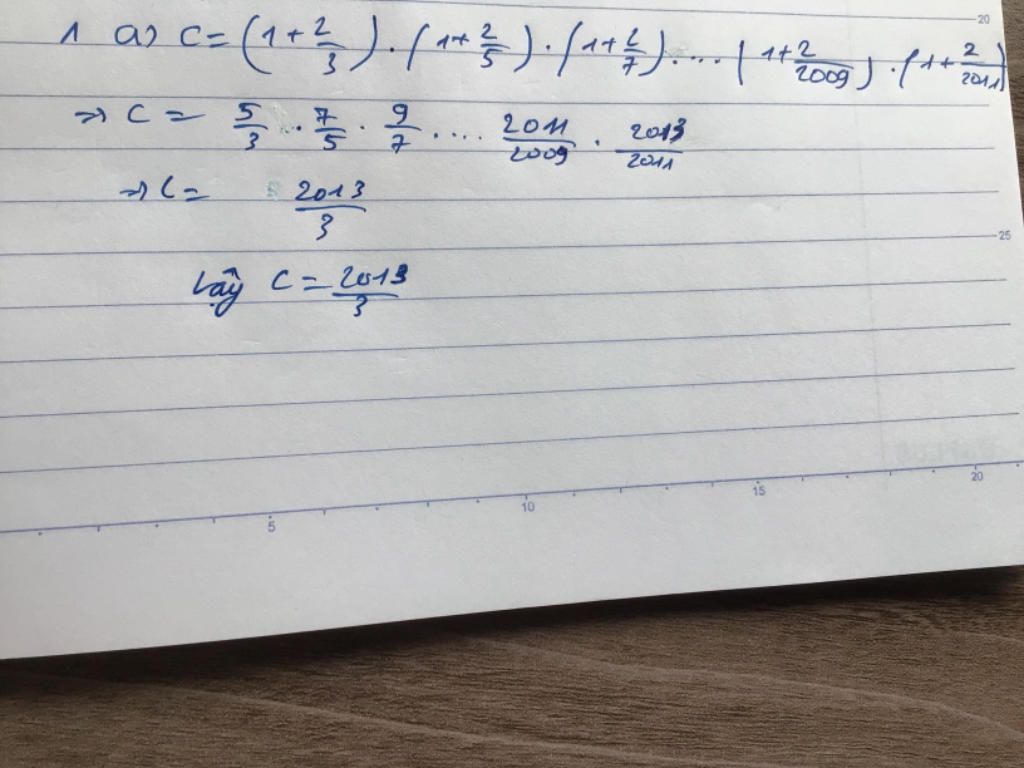 1 a) C = (1 + 2/3) . (1 + 2/5) . (1 + 2/7) .... (1 + 2/2009) . (1 + 2/2011)
=> C = 5/3 . 7/5 . 9/7 .... 2011/2009 . 2013/2011
=> C = 2013/3
Vậy C = 2013/3
20
25
5 10 15 20